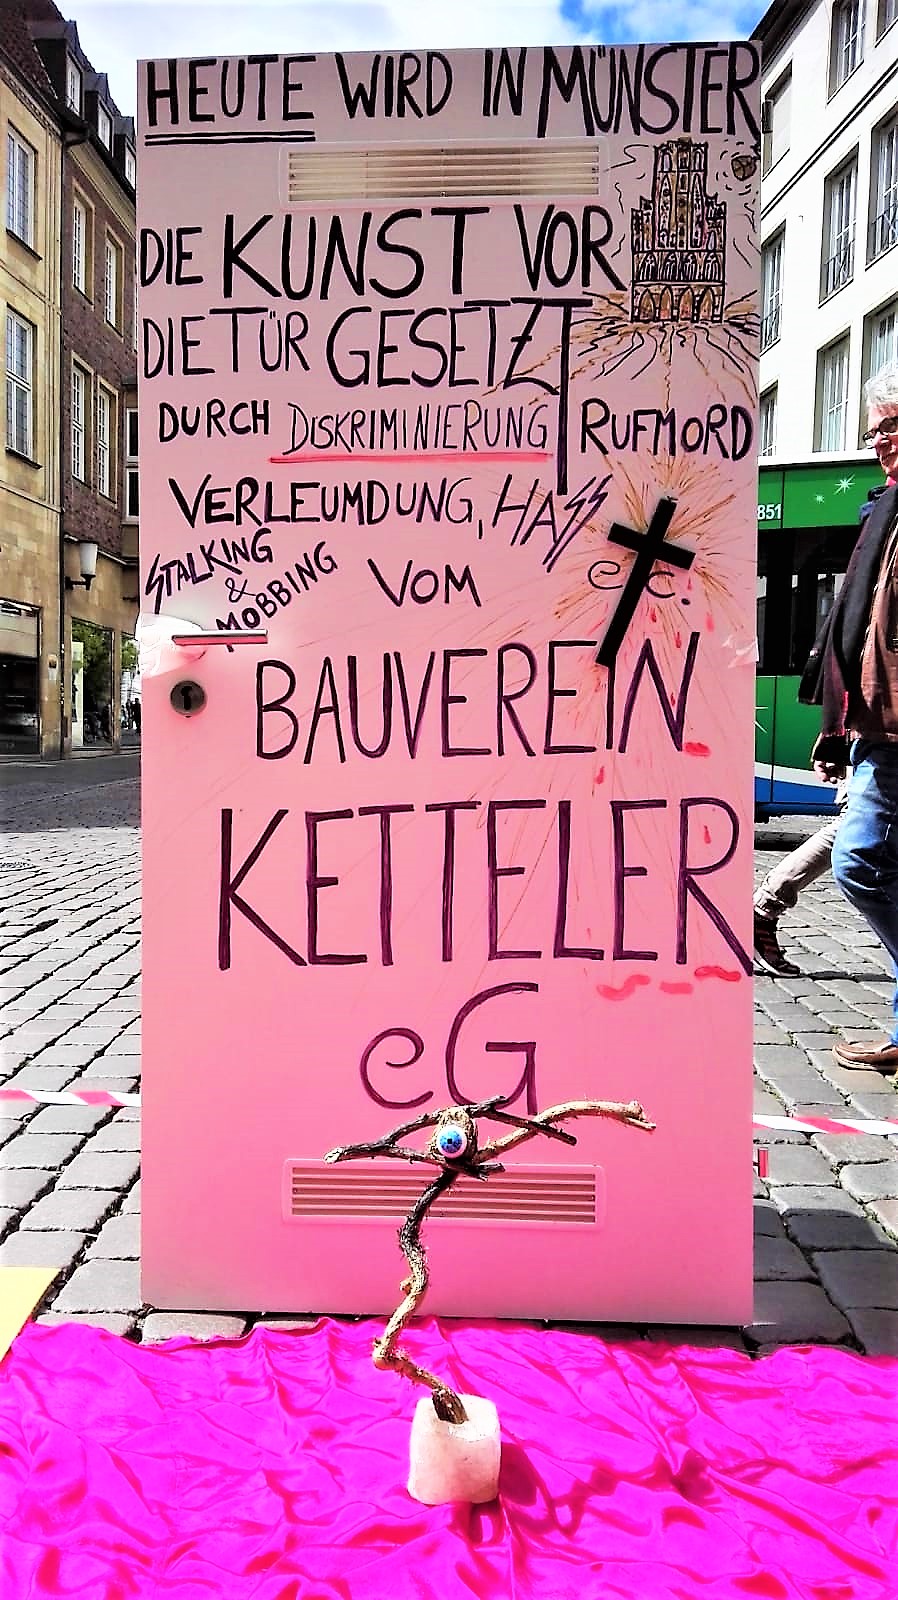 HEUTE WIRD IN MÜNSTER
DIE KUNST VOR
DIE TÜR GESETZT
DURCH DISKRIMINIERUNG RUFMORD
VERLEUMDUNG, HASS
STALKING
&
MOBBING
VOM etc.
BAUVEREIN
KETTELER
eG
851